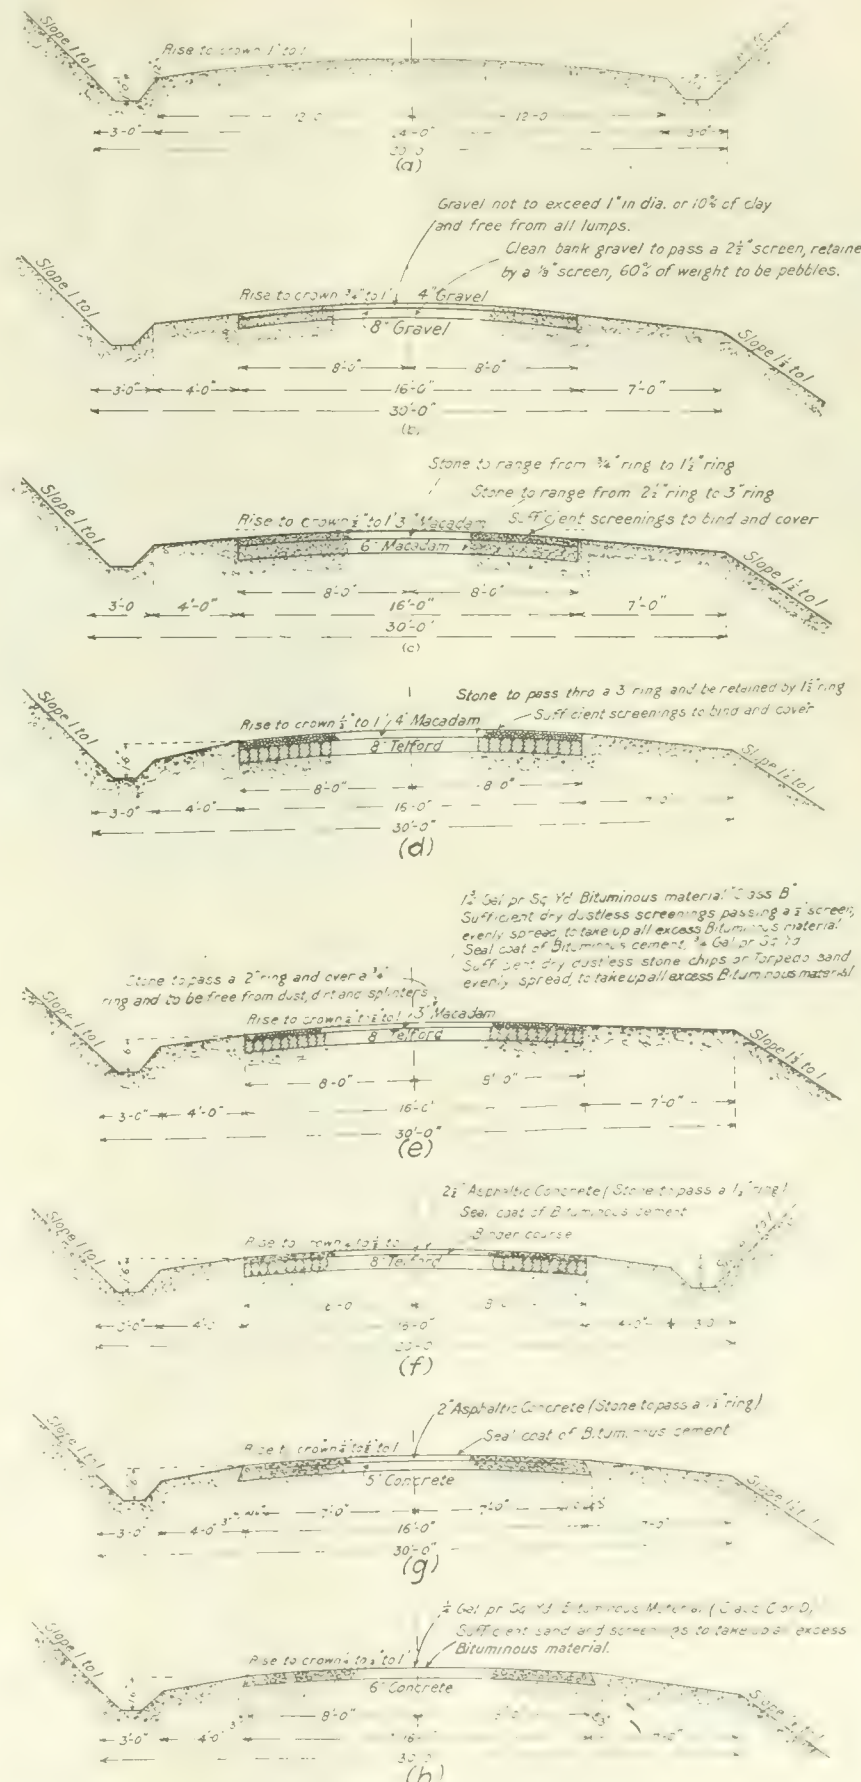 Slope 1 to 1
Rise to crown 1" to 1'
12-0 12-0
3-0" 24-0" 3-0"
30-0
(a)
Gravel not to exceed 1" in dia. or 10% of clay
and free from all lumps.
Clean bank gravel to pass a 2½" screen, retained
by a ⅛" screen, 60% of weight to be pebbles.
Slope 1 to 1
Rise to crown ¾" to 1' 4" Gravel
8" Gravel
Slope 1½ to 1
8'-0" 8'-0"
3'-0" 4'-0" 16'-0" 7'-0"
30'-0"
(b)
Stone to range from ¾" ring to 1½" ring
Stone to range from 2½" ring to 3" ring
Slope 1 to 1
Rise to crown ½" to 1' 3" Macadam Sufficient screenings to bind and cover
6" Macadam
Slope 1½ to 1
8'-0" 8'-0"
3'-0 4'-0" 16'-0" 7'-0"
30'-0"
(c)
Slope 1 to 1
Stone to pass thro a 3 ring and be retained by 1½" ring
Rise to crown ½" to 1' 4" Macadam Sufficient screenings to bind and cover
8" Telford
Slope 1½ to 1
8'-0" 8'-0"
3'-0" 4'-0" 16'-0" 7'-0"
30'-0"
(d)
Gal pr Sq Yd Bituminous material "Class B"
Sufficient dry dustless screenings passing a ½" screen,
evenly spread, to take up all excess Bituminous material
Seal coat of Bituminous cement, Gal pr Sq Yd
Sufficient dry dustless stone chips or Torpedo sand
evenly spread, to take up all excess Bituminous material
Stone to pass a 2" ring and over a ¾"
ring and to be free from dust, dirt and splinters
Slope 1 to 1
Rise to crown to 1' 3" Macadam
8" Telford
Slope 1½ to 1
8-0" 8'-0"
3-0" 4'-0" 16'-0' 7'-0"
30'-0"
(e)
2½" Asphaltic Concrete (Stone to pass a ring)
Seal coat of Bituminous cement
Binder course
Slope 1 to 1
Rise to crown to
8" Telford
8-0 8
3'-0" 4'-0 16'-0" 4'-0" 3-0
30-0
(f)
2" Asphaltic Concrete (Stone to pass a ring)
Seal coat of Bituminous cement
Slope 1 to 1
Rise to crown ¼" to ½" to 1
5" Concrete
Slope 1½ to 1
7'-0" 7'-0"
3'-0" 4'-0 16'-0" 7'-0"
30'-0"
(g)
Gal pr Sq Yd Bituminous Material (Class C or D)
Sufficient sand and screenings to take up all excess
Bituminous material.
Slope 1 to 1
Rise to crown to 1'
6" Concrete
Slope 1½ to 1
8'-0" 8'-0"
3'-0" 4'-0 16' 7'-0"
30'-0
(h)